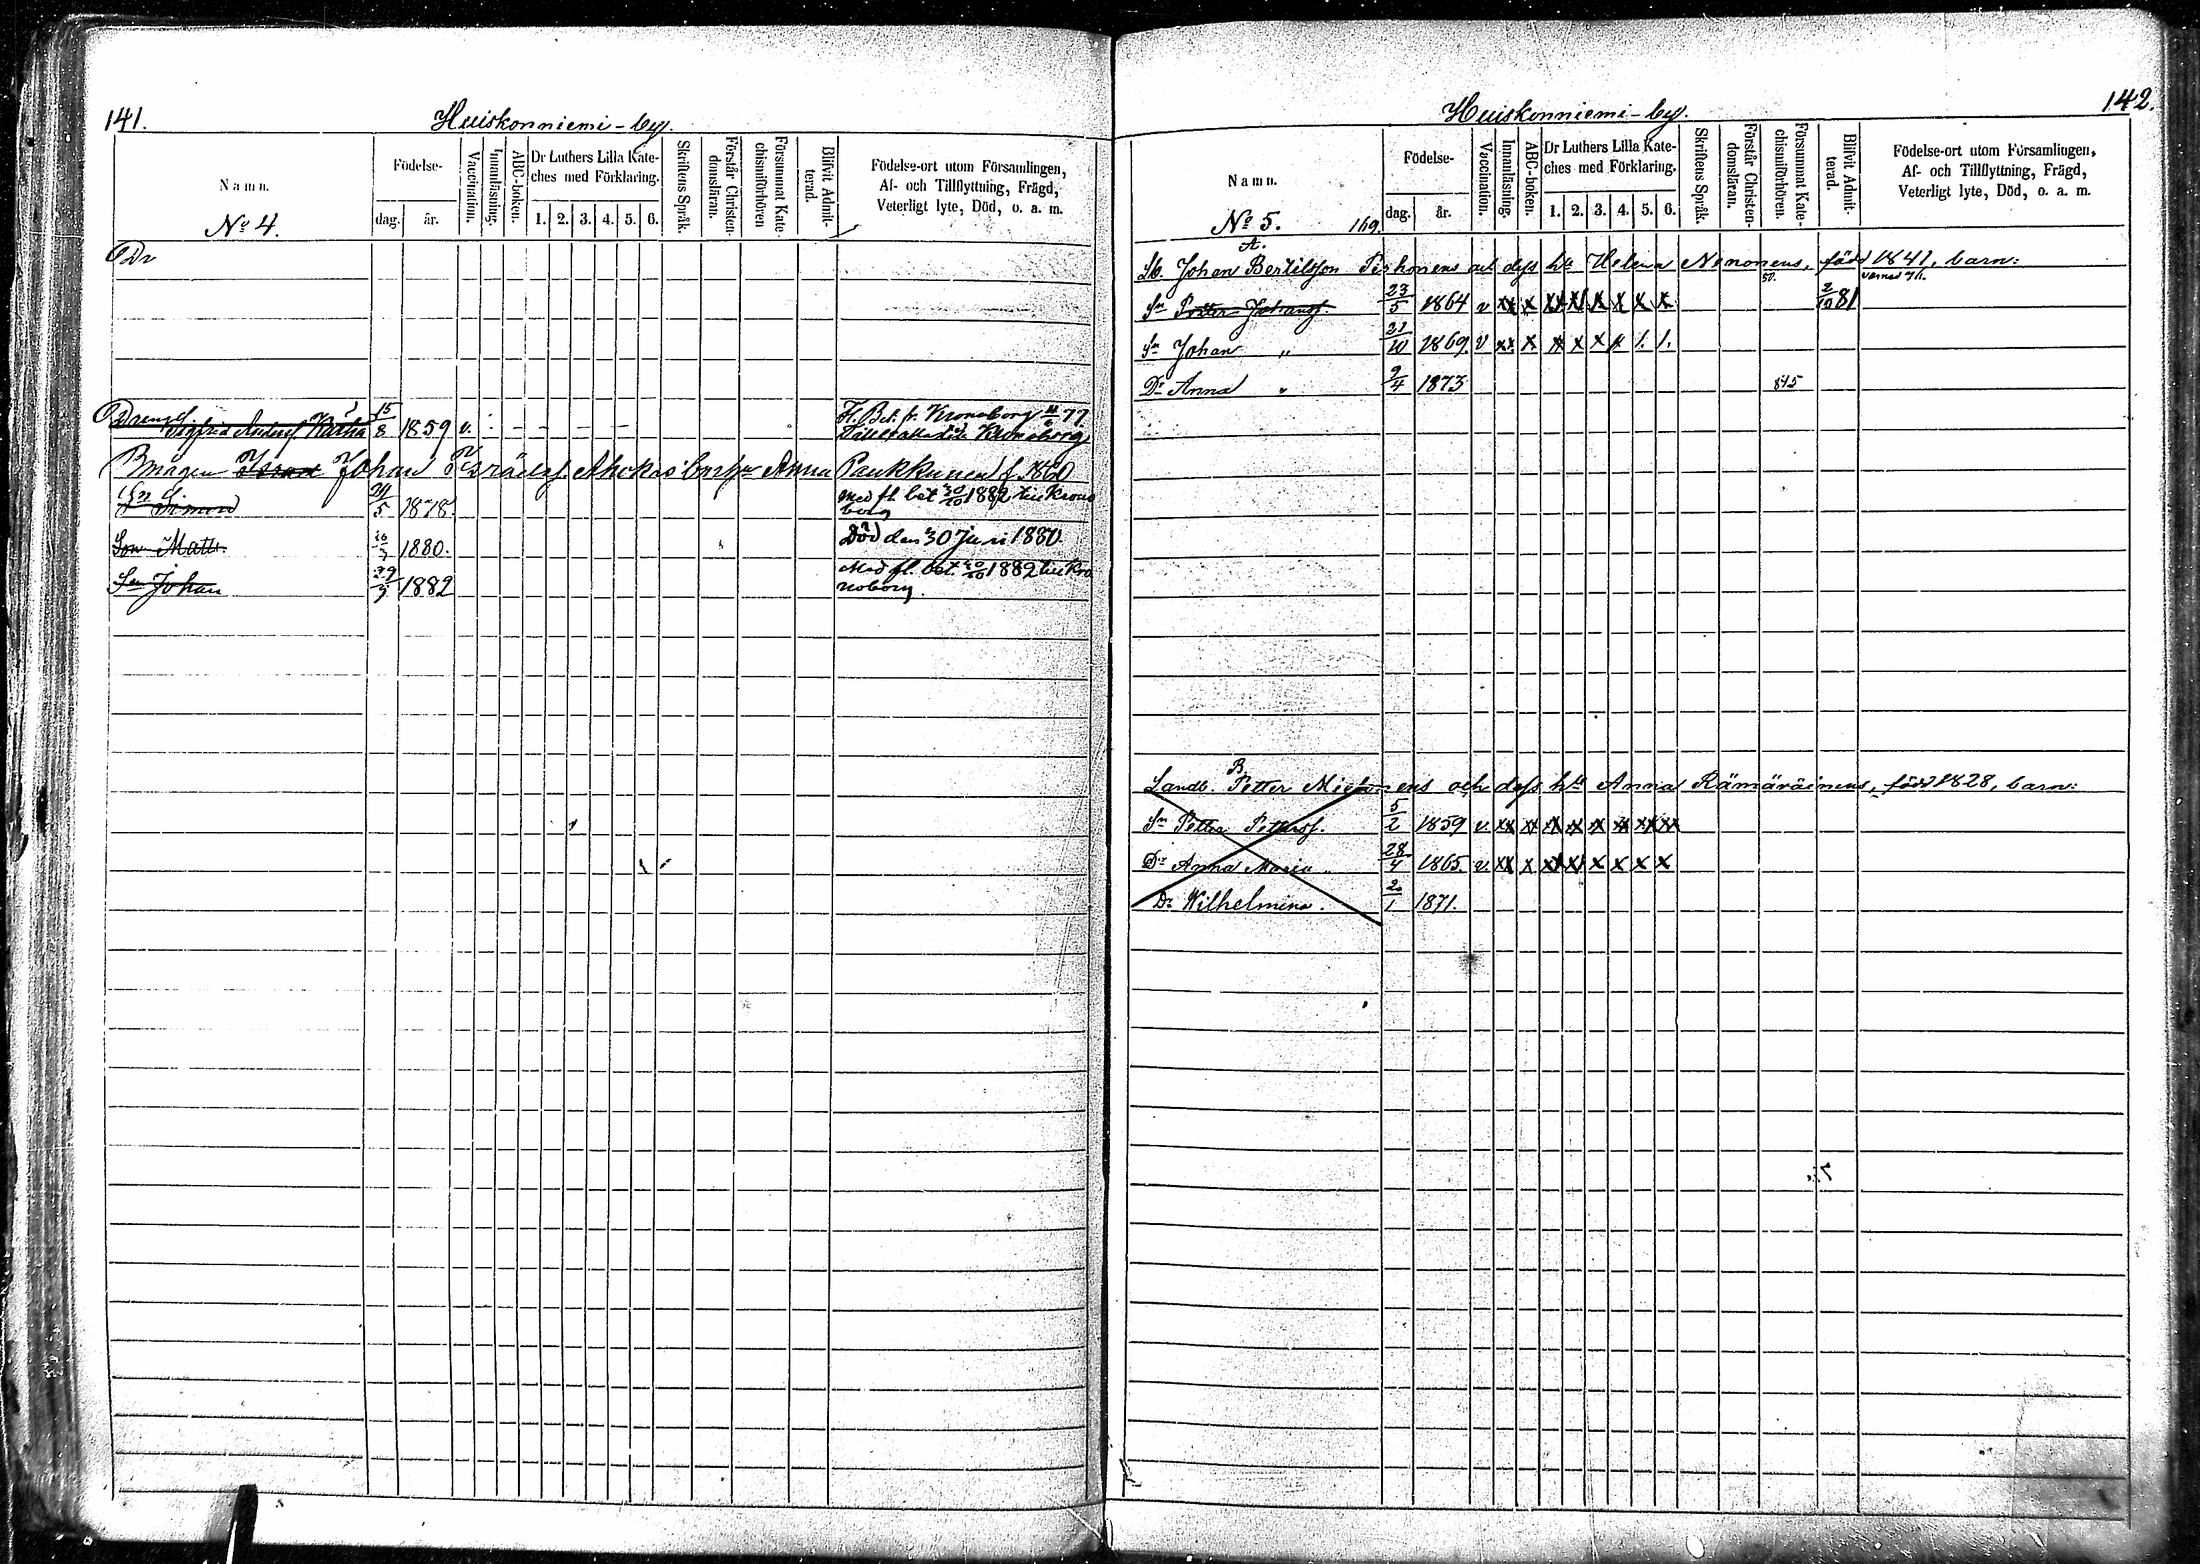 141.
Huiskonniemi-by.
Namn.
Födelse-
dag.
år.
Vaccination.
Innanläsning.
ABC-boken.
Dr Luthers Lilla Kate-
ches med Förklaring.
1. 2. 3. 4. 5. 6.
Skriftens Språk.
Förstår Christen-
domsläran.
Försummat Kate-
chismiförhören
Blifvit Admit-
terad.
Födelse-ort utom Församlingen,
Af- och Tillflyttning, Frägd,
Veterligt lyte, Död, o. a. m.
No 4.
Dr
Drengen
Sigfrid Andersf. 15/8 1859 v. Fl. Bet. fr. Kronoborg 77.
Kronoborg
Johan Anna Paukkunen f. 1860
Sn Simon /5 1878. med fl. bet 30/10 1882 till Krono
borg
Son Matts. 1880. Död den 30 Juni 1880.
Sn Johan 29/9 1882 Med fl. bet. 30/10 1882 till Kro
noborg.
142.
Huiskonniemi-by.
Namn.
Födelse-
dag.
år.
Vaccination.
Innanläsning.
ABC-boken.
Dr Luthers Lilla Kate-
ches med Förklaring.
1. 2. 3. 4. 5. 6.
Skriftens Språk.
Förstår Christen-
domsläran.
Försummat Kate-
chismiförhören.
Blifvit Admit-
terad.
Födelse-ort utom Församlingen,
Af- och Tillflyttning, Frägd,
Veterligt lyte, Död, o. a. m.
No 5. 169
A.
Lb. Johan Bertilsson och dess hu Helena Nenonens, född 1841, barn:
Sn Petter Johansf. 23/5 1864 v xx x xx xx x x x x 2/10 81
Sn Johan " 21/10 1869. v xx x x x x x 1. 1.
Dr Anna " 9/4 1873 845
B.
Landb. Petter och dess hu Anna Rämäräinens, född 1828, barn:
Sn Petter Pettersf. 5/2 1859 v. xx xx xx xx xx xx xx xx
Dr Anna Maria " 28/4 1865. v. xx x xx xx x x x x
Dr Wilhelmina. 2/1 1871.